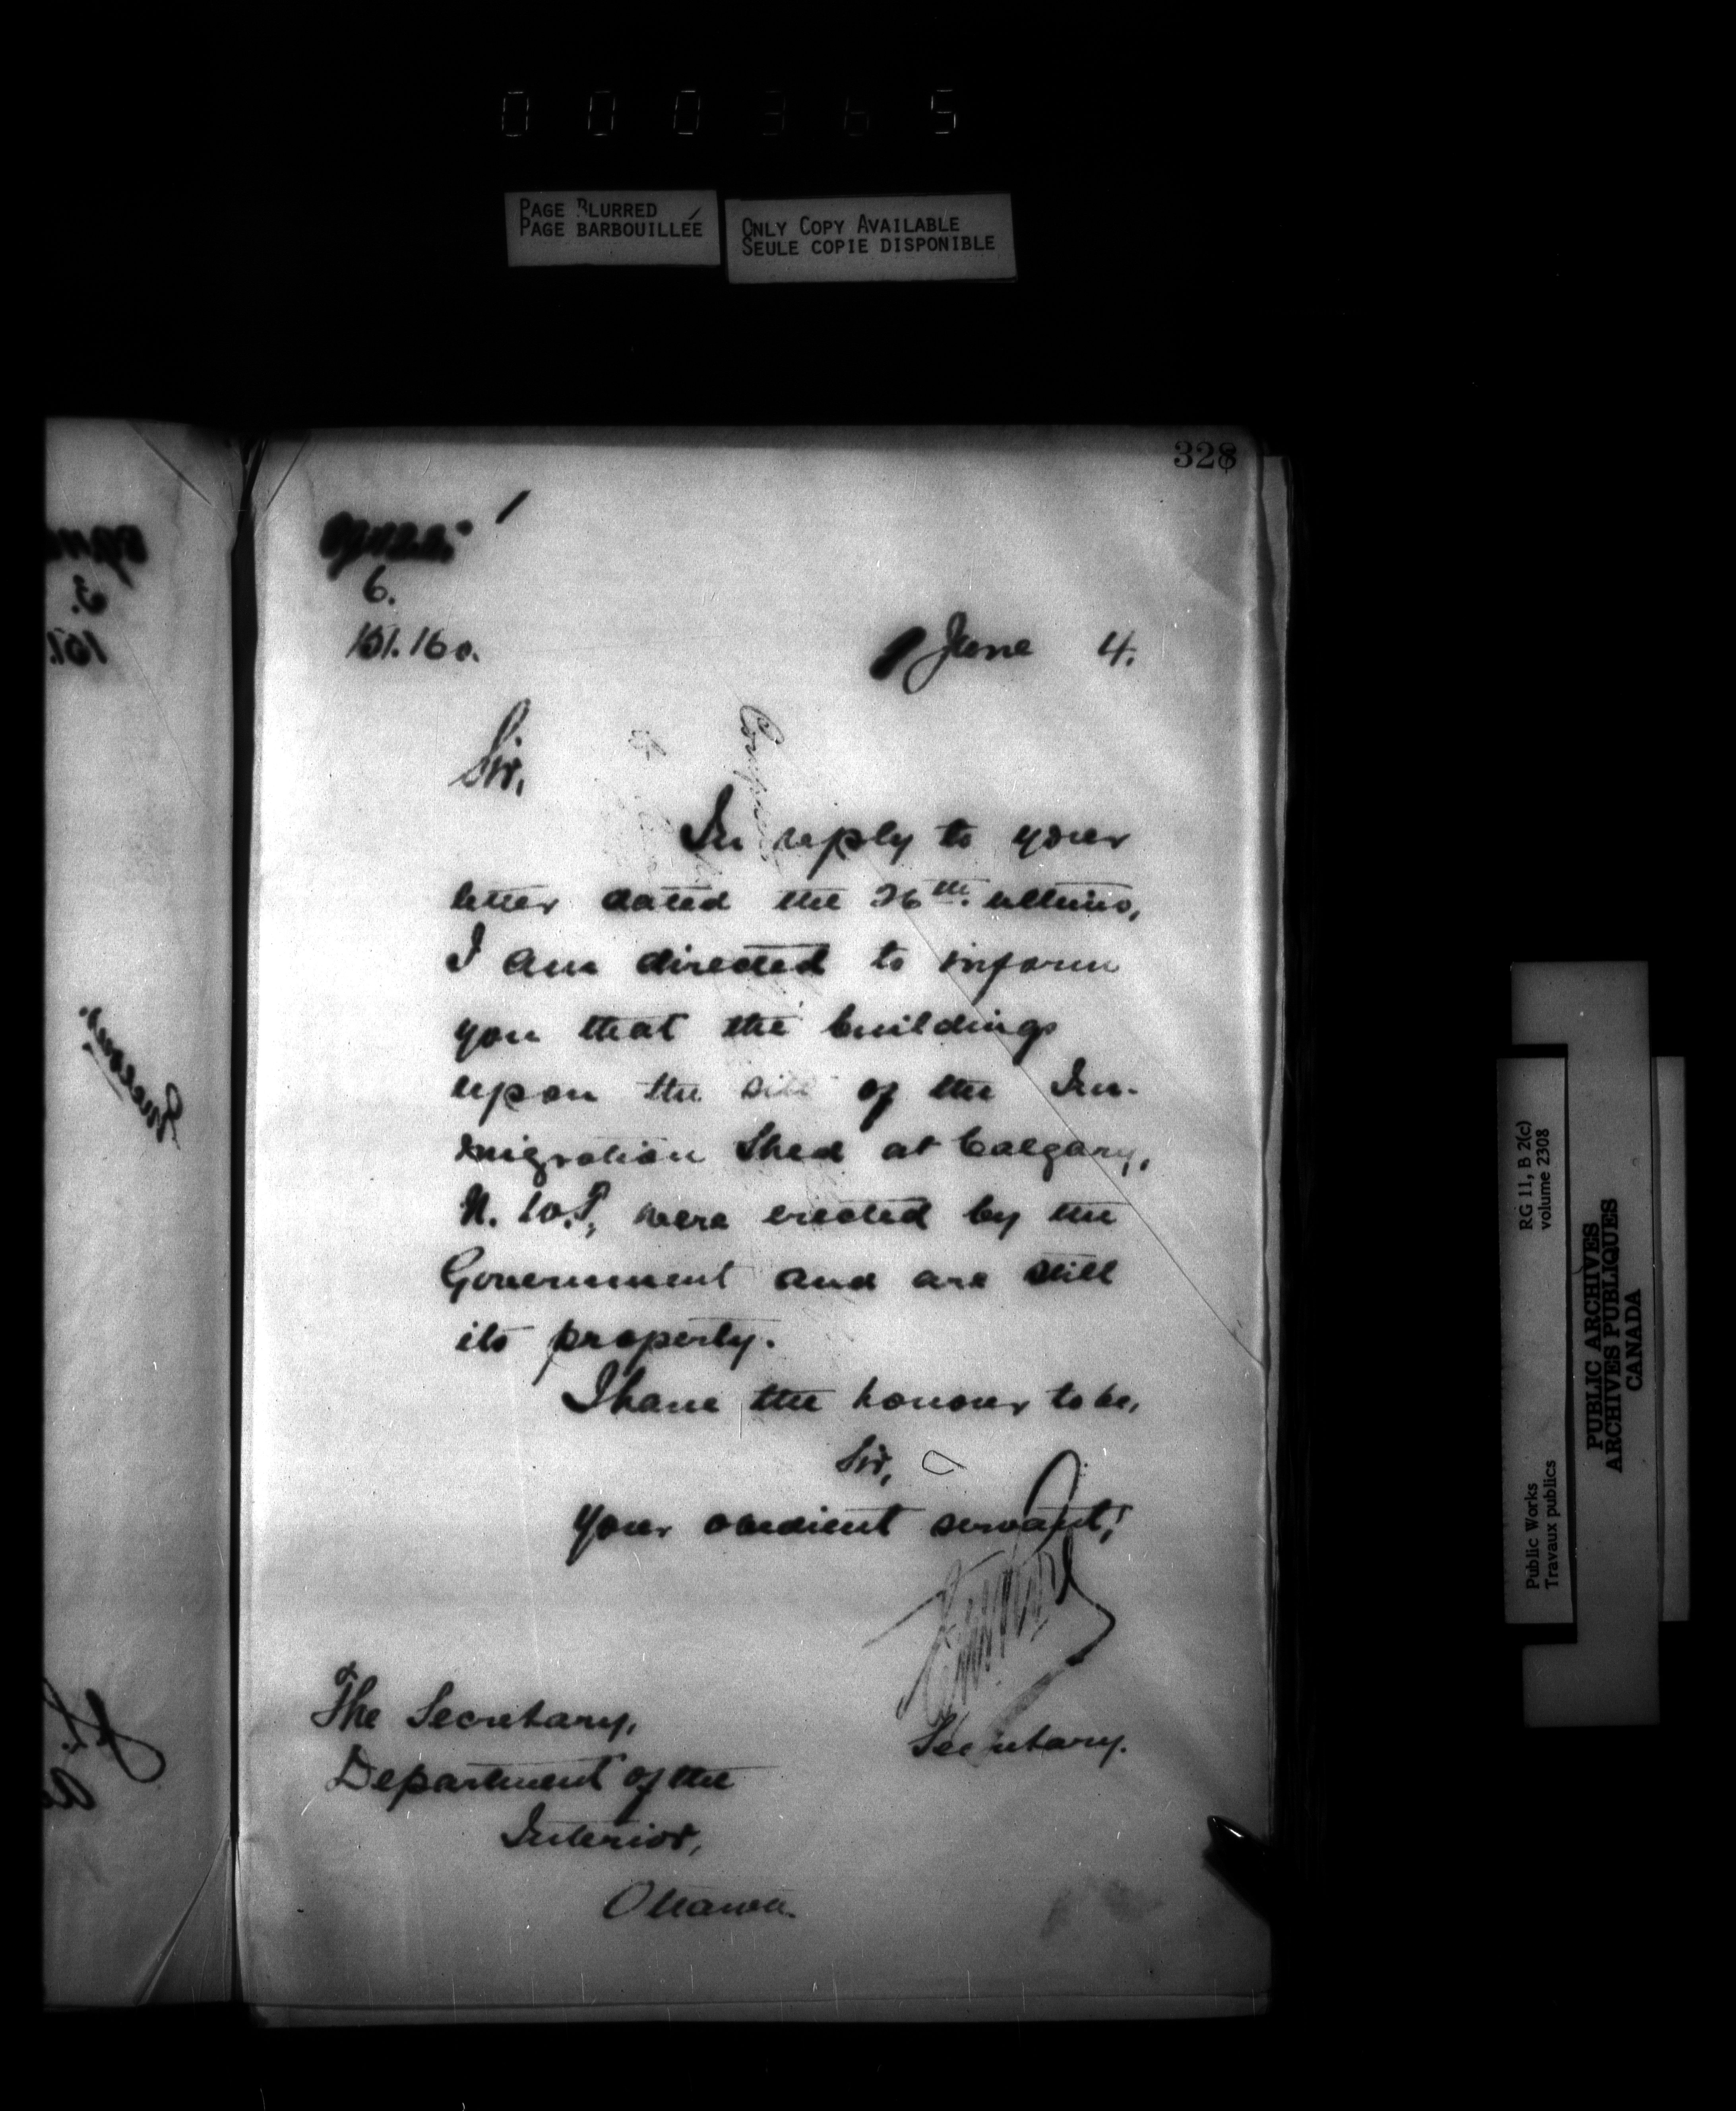 0 0 0 3 6 5
PAGE BLURRED
PAGE BARBOUILLÉE
ONLY COPY AVAILABLE
SEULE COPIE DISPONIBLE
328
6.
151.160.
June 4.
Sir,
In reply to your
letter dated the 26th. ultimo,
I am directed to inform
you that the buildings
upon the site of the Im-
migration Shed at Calgary,
N. W. T., were erected by the
Government and are still
its property.
I have the honour to be,
Sir,
Your obedient servant,
Secretary.
The Secretary,
Department of the
Interior,
Ottawa.
RG 11, B 2(c)
volume 2308
Public Works
Travaux publics
PUBLIC ARCHIVES
ARCHIVES PUBLIQUES
CANADA